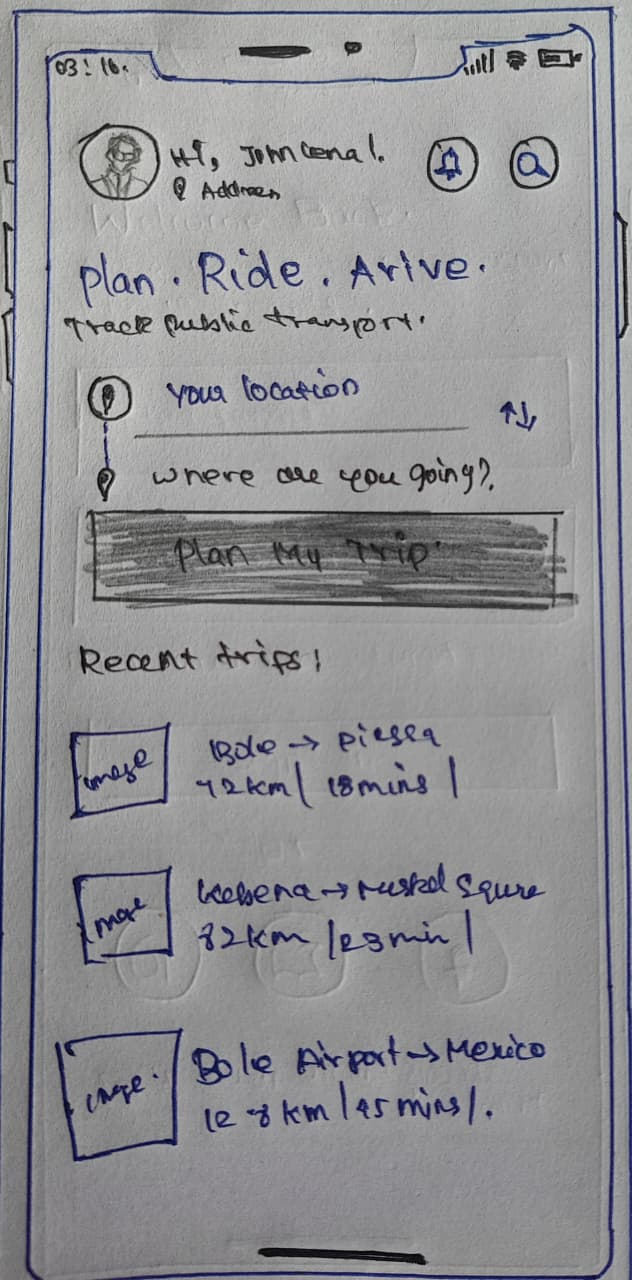 03:16.
Hi, John Cena!.
Address
Plan. Ride. Arive.
Track public transport.
Your location
Where are you going?
Plan My Trip
Recent trips:
image
Bole → piassa
km | 18 mins |
image
Kebena → Squre
km | 23 min |
image.
Bole Airport → Mexico
km | 45 mins |.